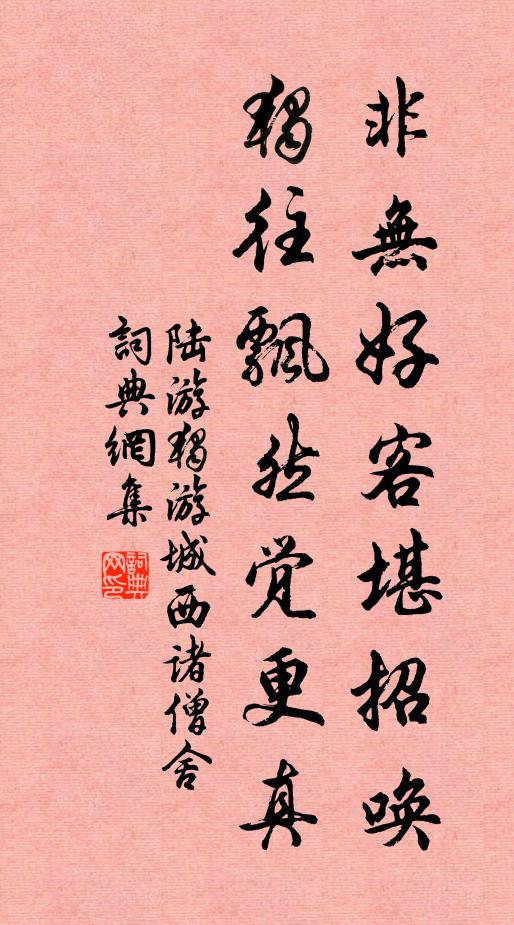 非無好客堪招喚
獨往飄然覺更真
陆游獨游城西诸僧舍
詞典網集
詞典网印